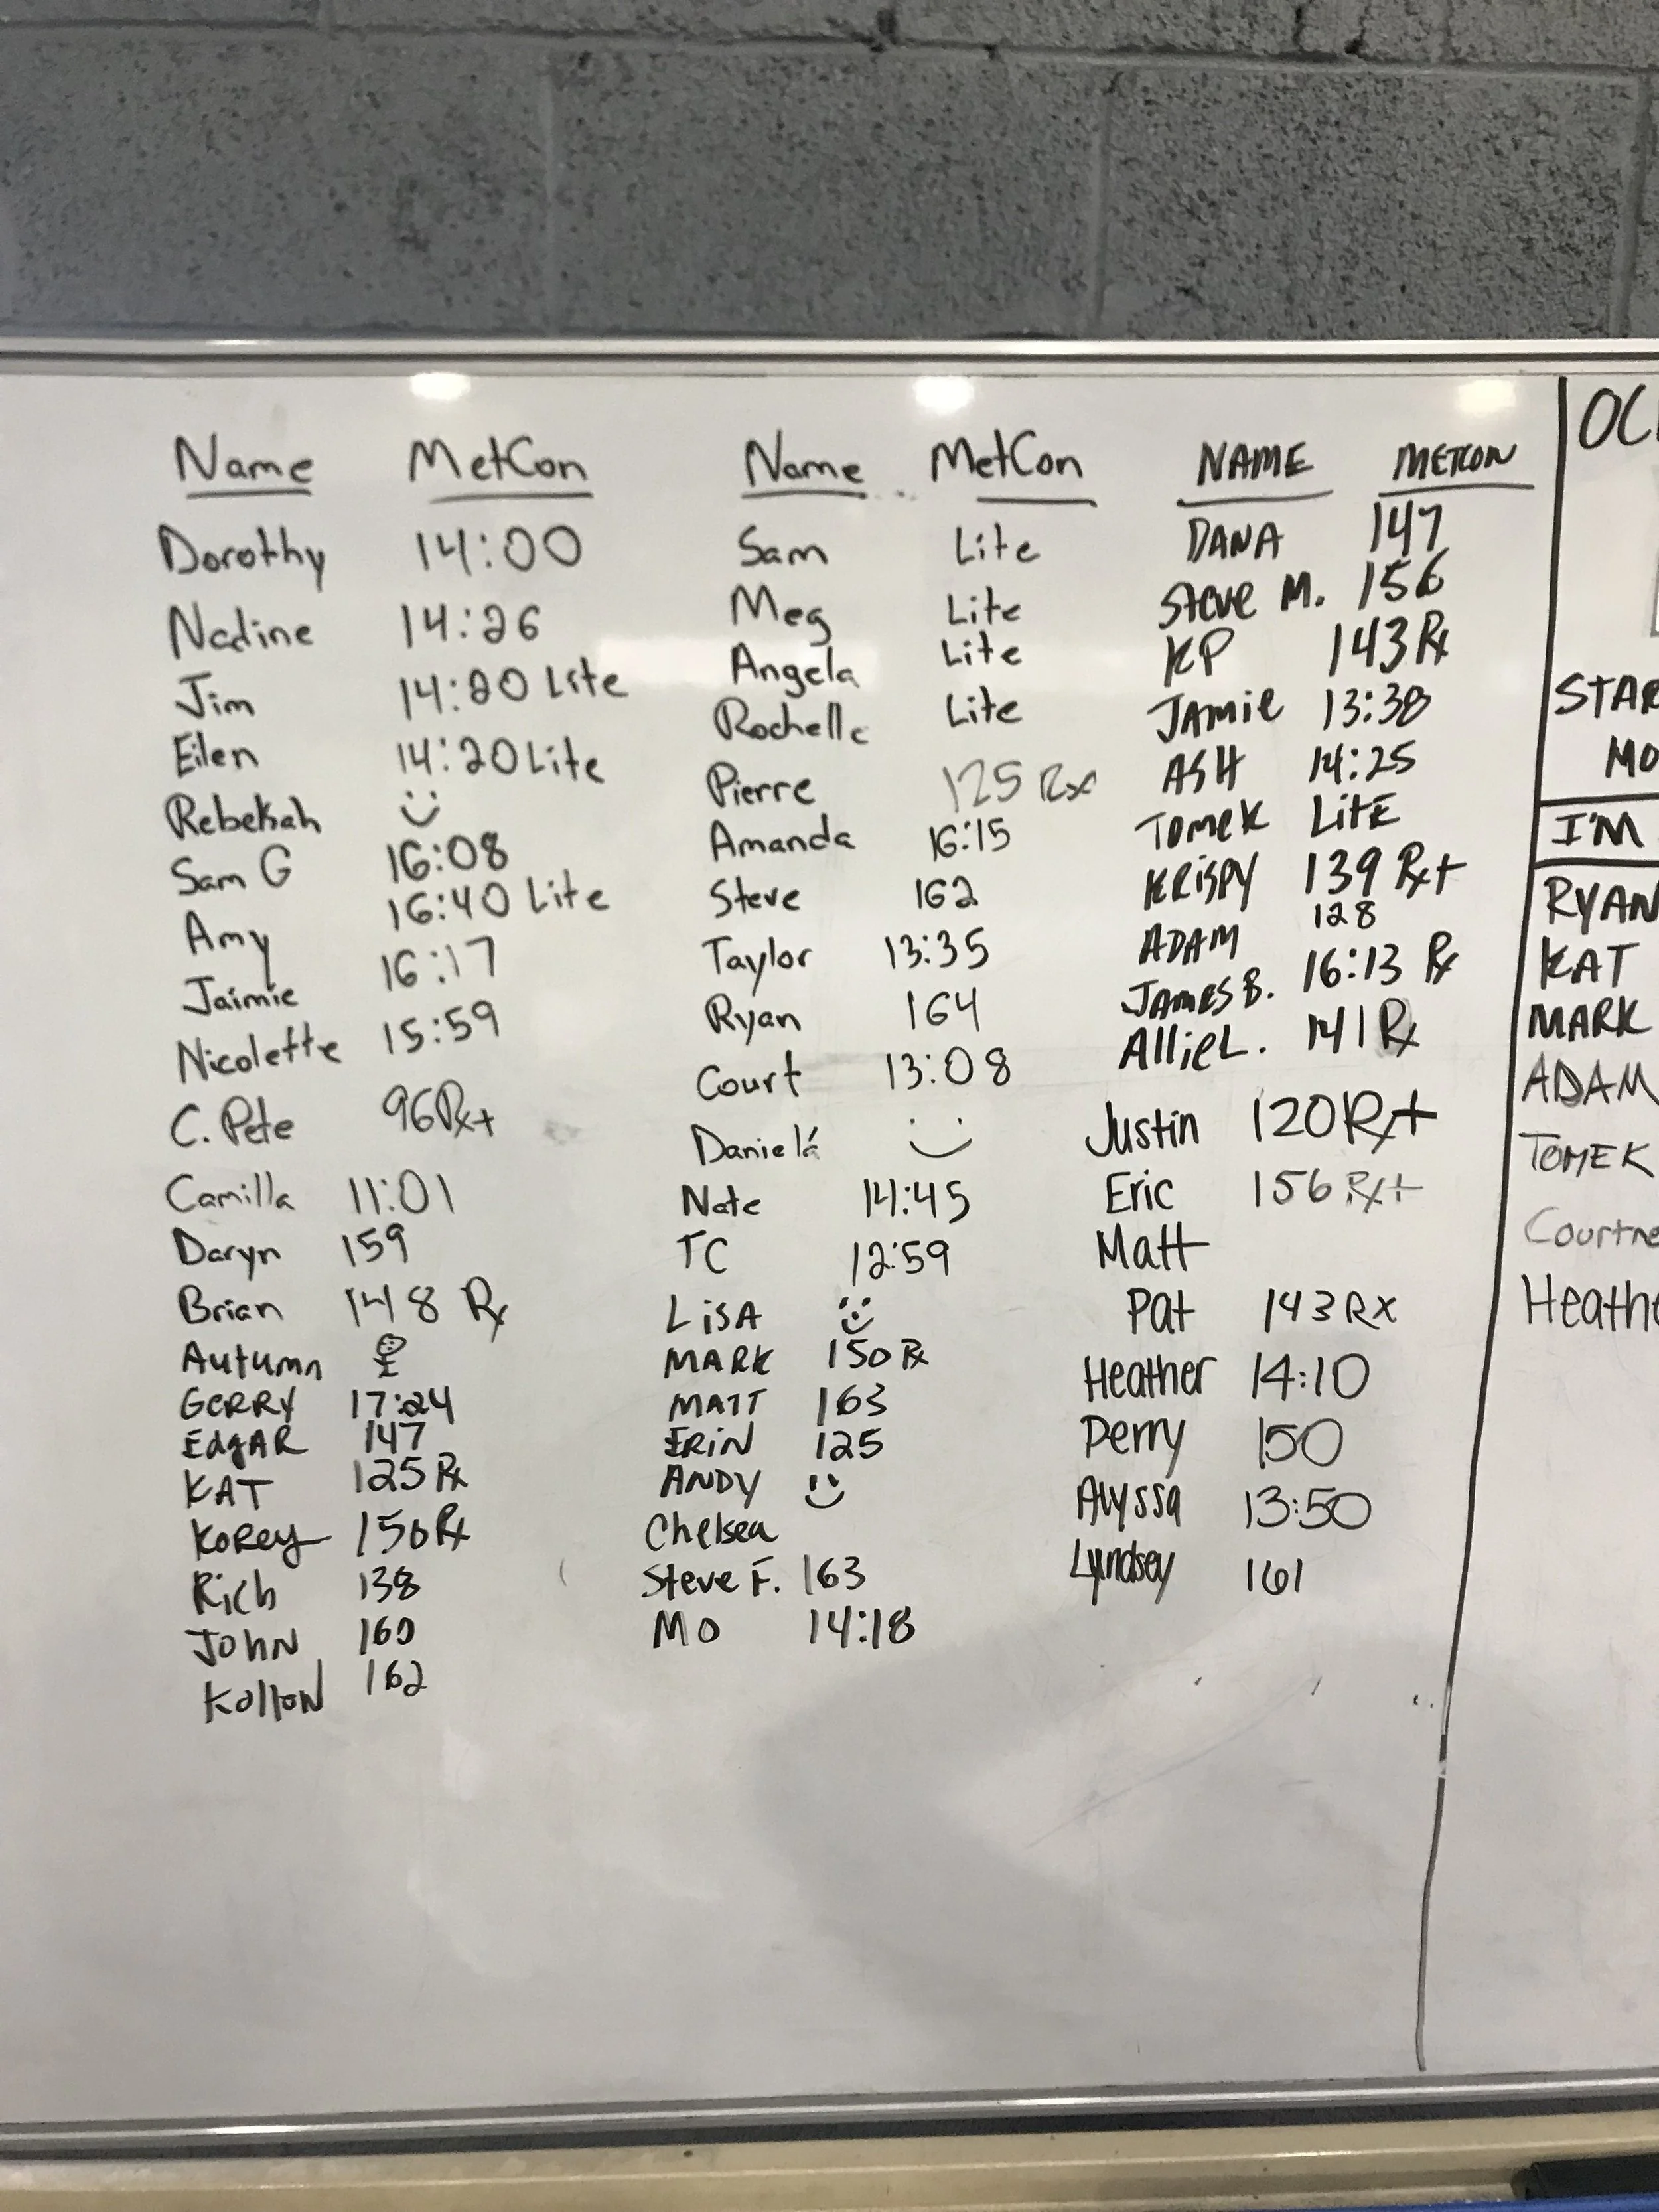 Name MetCon
Dorothy 14:00
Nadine 14:26
Jim 14:20 Lite
Eilen 14:20 Lite
Rebekah
Sam G 16:08
Amy 16:40 Lite
Jaimie 16:17
Nicolette 15:59
C. Pete 96 Rx+
Camilla 11:01
Daryn 159
Brian 148 Rx
Autumn
GERRY 17:24
EdgAR 147
KAT 125 Rx
KoRey 150 Rx
Rich 138
JOHN 160
Kolton 162
Name MetCon
Sam Lite
Meg Lite
Angela Lite
Rochelle Lite
Pierre 125 Rx
Amanda 16:15
Steve 162
Taylor 13:35
Ryan 164
Court 13:08
Daniela
Nate 14:45
TC 12:59
LiSA
MARK 150 Rx
MATT 163
ERiN 125
ANDY
Chelsea
Steve F. 163
Mo 14:18
NAME METCON
DANA 147
Steve M. 156
KP 143 Rx
JAMie 13:38
ASH 14:25
Tomek LitE
KRiSPY 139 Rx+
ADAM 128
JAMES B. 16:13 Rx
AlliE L. 141 Rx
Justin 120 Rx+
Eric 156 Rx+
Matt
Pat 143 RX
Heather 14:10
Perry 150
Alyssa 13:50
Lyndsey 161
STAR
MO
I'M
RYAN
KAT
MARK
ADAM
TOMEK
Courtne
Heathe